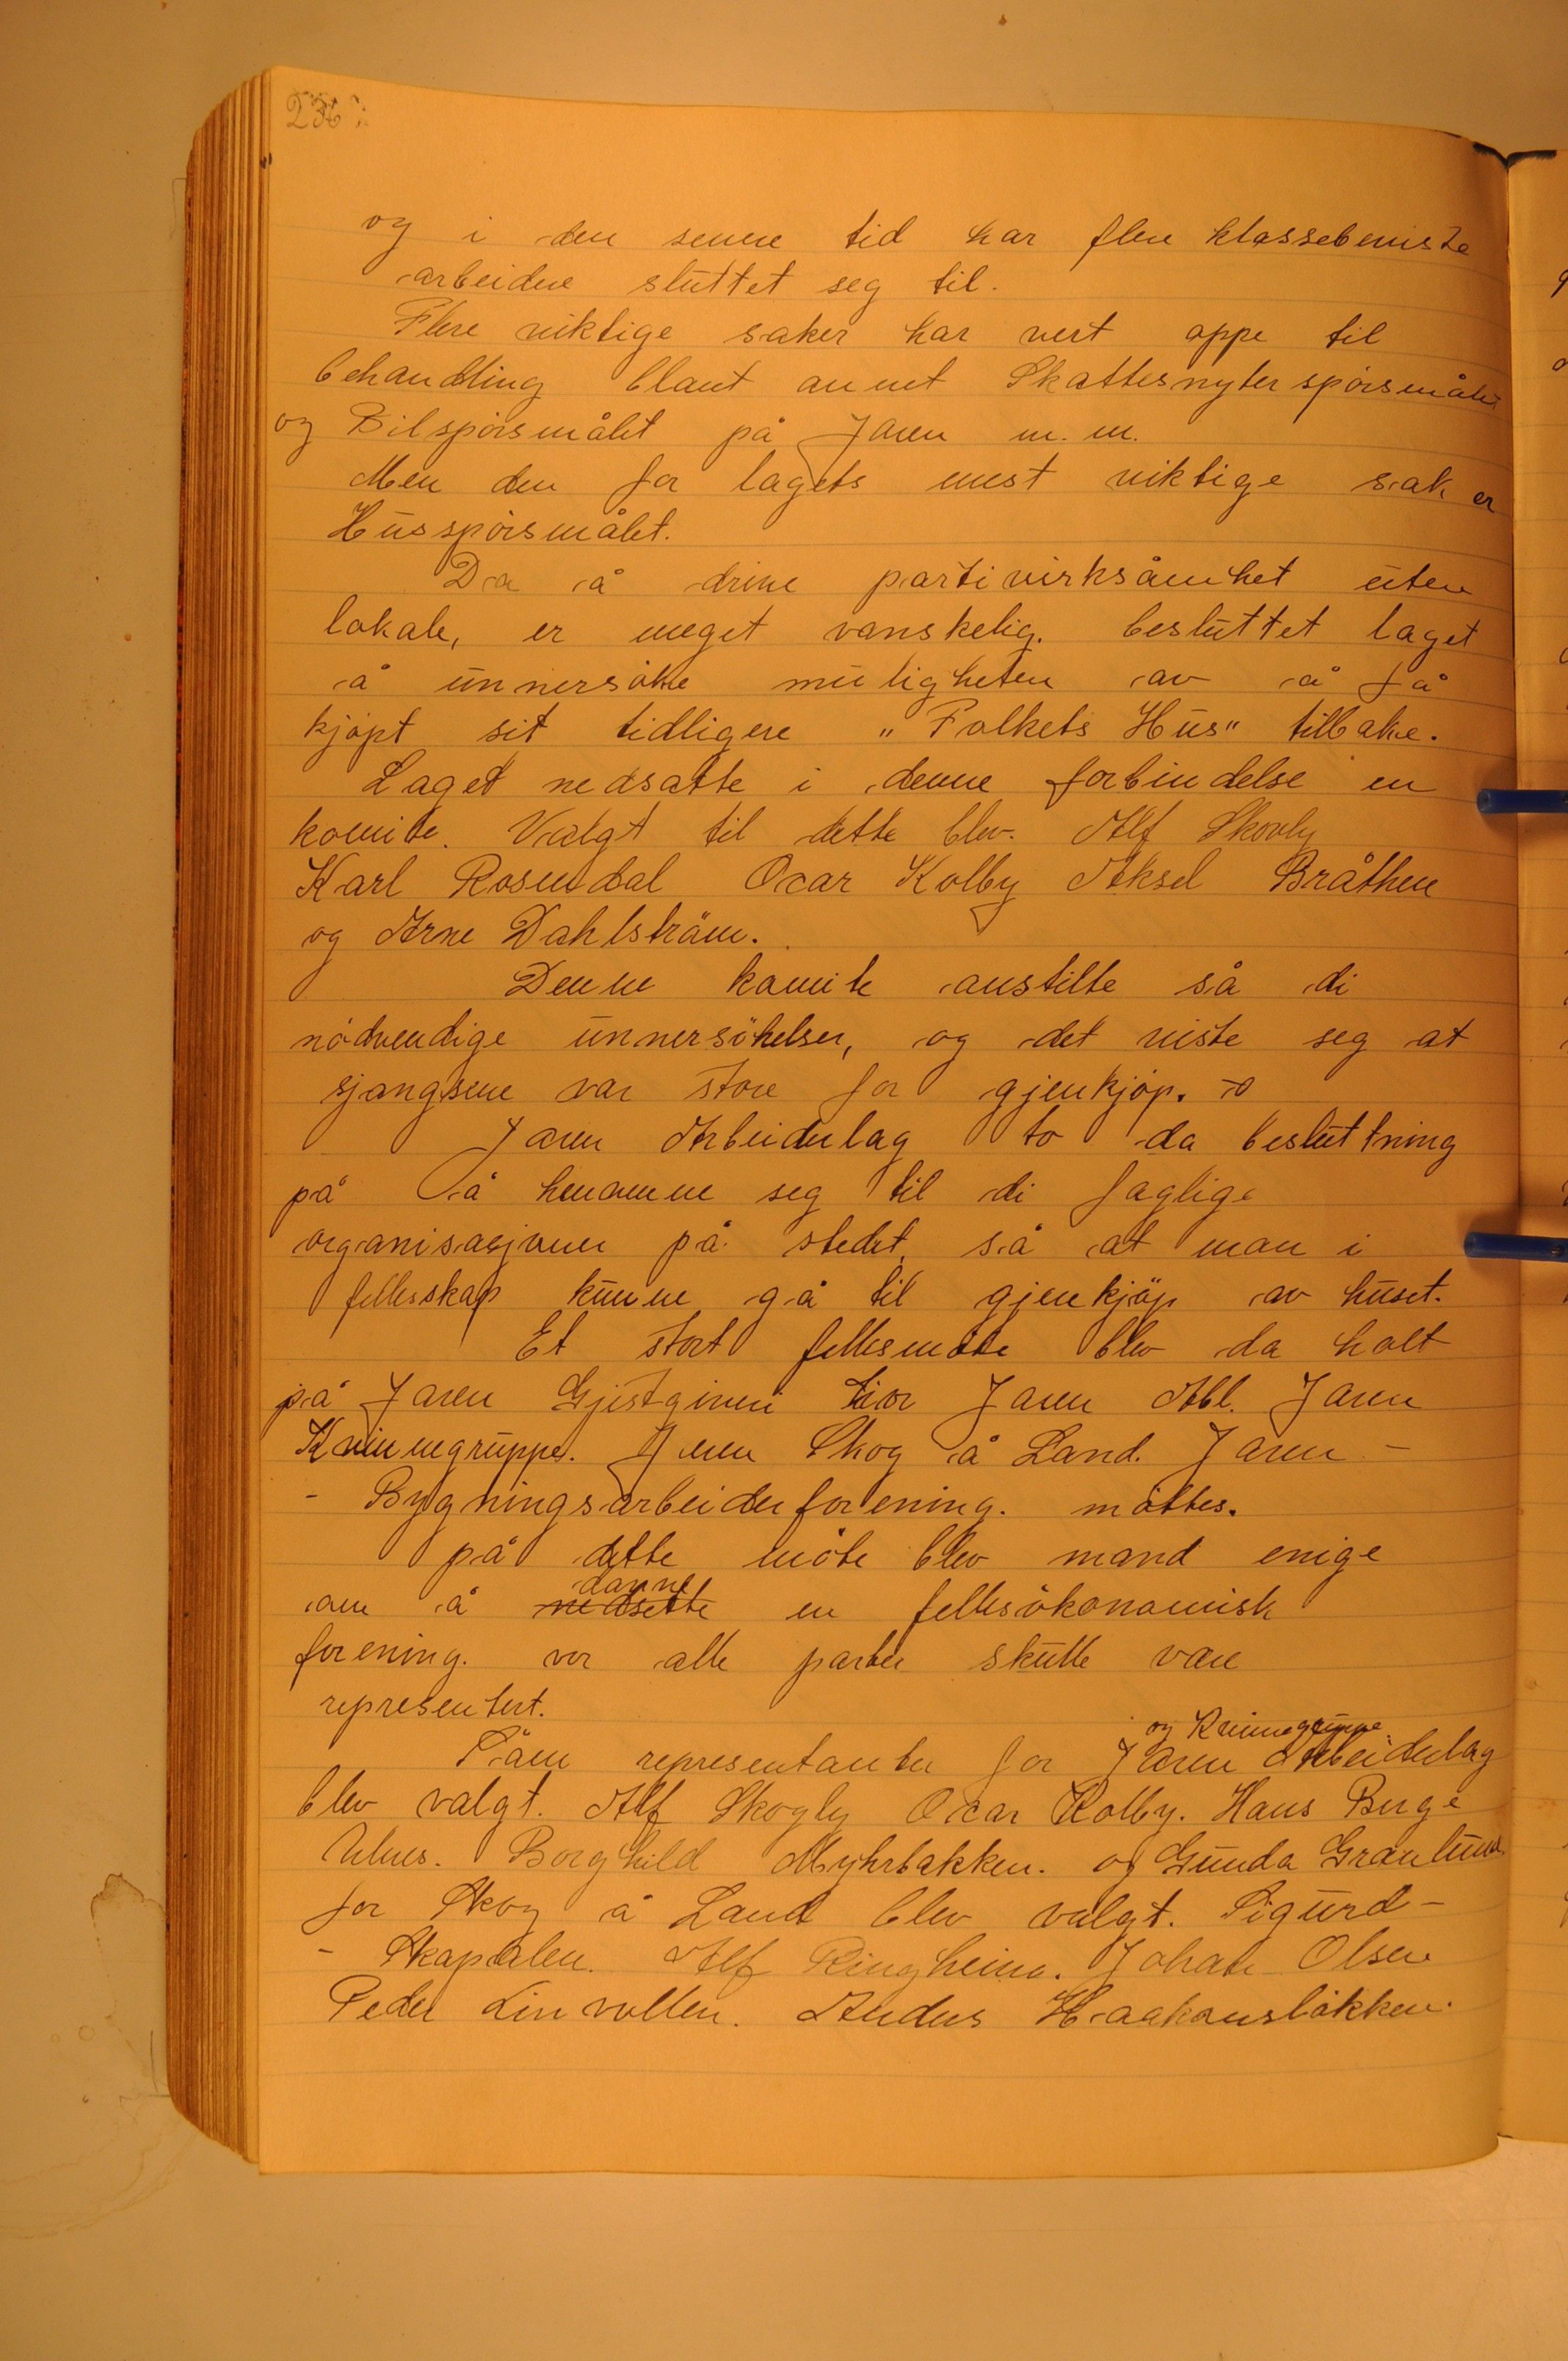 236
og i den senere tid har flere klassebeviste
arbeidere sluttet seg til.
Flere viktige saker har vert oppe til
behandling blant annet Skattesnyterspörsmålet
og Bilspörsmålet på Jaren m.m.
Men den for lagets mest viktige sak er
Husspörsmålet.
Da å drive partivirksåmhet uten
lokale, er meget vanskelig. besluttet laget
å unnersöke muligheten av å få
kjöpt sit tidligere "Folkets Hus" tilbake.
Laget nedsatte i denne forbindelse en
komite. Valgt til dette blev. Alf Skogly
Karl Rosendal Oscar Kolby Aksel Bråthen
og Arne Dahlström.
Denne komite anstilte så di
nödvendige unnersökelser, og det viste seg at
sjangsene var store for gjenkjöp.
Jaren Arbeiderlag to da besluttning
på å henvenne seg til di faglige
organisasjoner på stedet, så at man i
fellesskap kunne gå til gjenkjöp av huset.
Et stort fellesmöte blev da holt
på Jaren Gjestgiveri hvor Jaren Abl. Jaren
Kvinnegruppe. Jaren Skog å Land. Jaren -
- Bygningsarbeiderforening. möttes.
på dette möte blev mand enige
om å nedsette danne en fellesökonomisk
forening. vor alle parter skulle være
representert.
Fäm representanter for Jaren Arbeiderlag og Kvinnegruppe.
blev valgt. Alf Skogly Oscar Kolby. Hans Berge
Ulnes. Borghild Myhrbakken. og Gunda Granlund.
for Skog å Land blev valgt. Sigurd -
- Skapalen. Alf Ringheim. Johan Olsen
Peder Linvollen. Anders Haakonslökken.